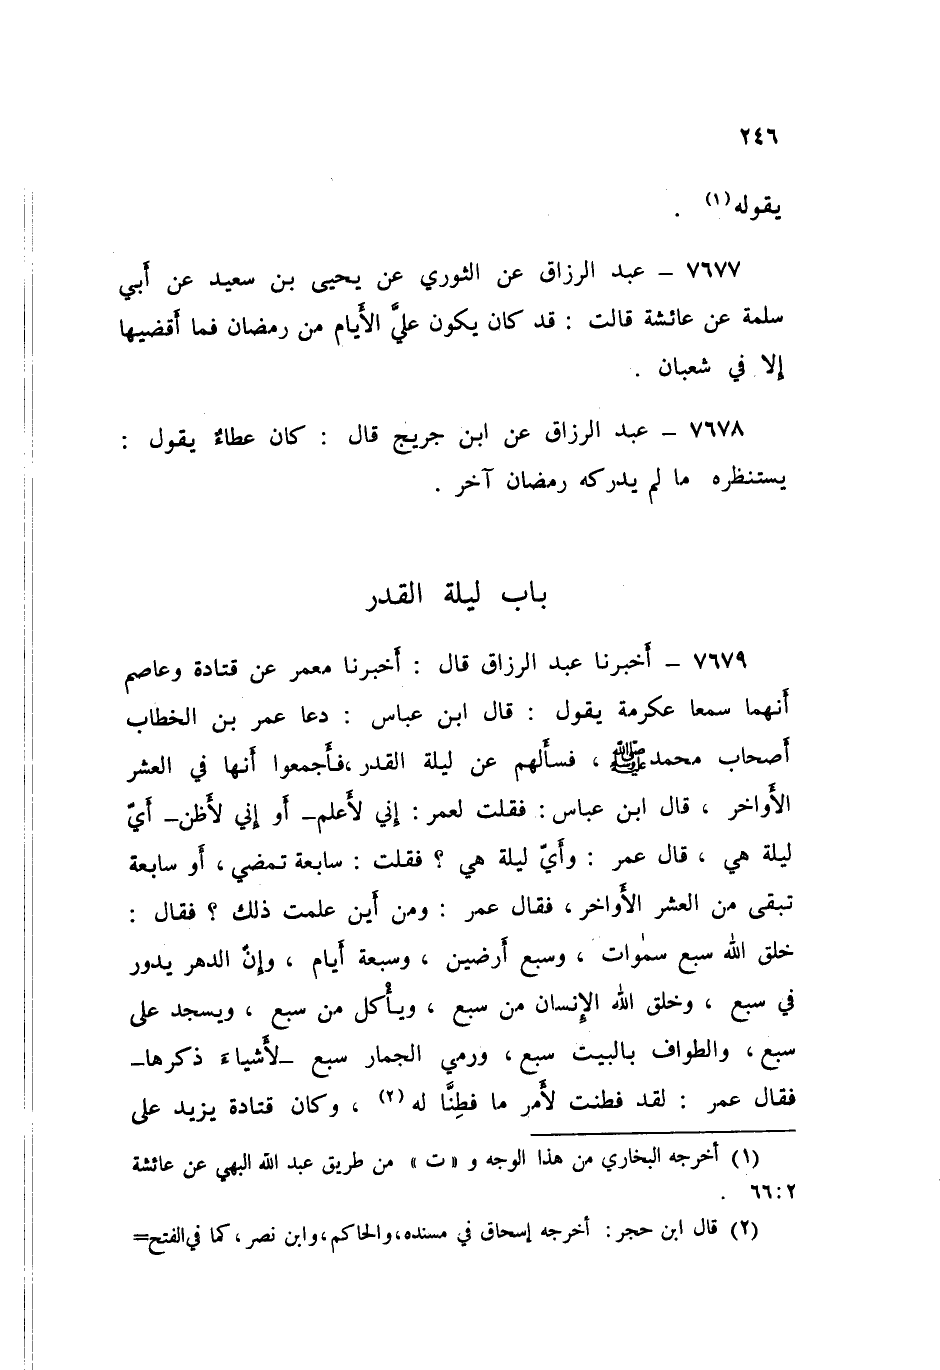 ٢٤٦
يقوله(١) .
٧٦٧٧ ـ عبد الرزاق عن الثوري عن يحيى بن سعيد عن أبي
سلمة عن عائشة قالت : قد كان يكون عليَّ الأيام من رمضان فما أقضيها
إلا في شعبان .
٧٦٧٨ ـ عبد الرزاق عن ابن جريج قال : كان عطاءٌ يقول :
يستنظره ما لم يدركه رمضان آخر .
باب ليلة القدر
٧٦٧٩ ـ أخبرنا عبد الرزاق قال : أخبرنا معمر عن قتادة وعاصم
أنهما سمعا عكرمة يقول : قال ابن عباس : دعا عمر بن الخطاب
أصحاب محمد ﷺ ، فسألهم عن ليلة القدر ، فأجمعوا أنها في العشر
الأواخر ، قال ابن عباس : فقلت لعمر : إني لأعلم ـ أو إني لأظن ـ أيّ
ليلة هي ، قال عمر : وأيّ ليلة هي ؟ فقلت : سابعة تمضي ، أو سابعة
تبقى من العشر الأواخر ، فقال عمر : ومن أين علمت ذلك ؟ فقال :
خلق الله سبع سمٰوات ، وسبع أرضين ، وسبعة أيام ، وإنّ الدهر يدور
في سبع ، وخلق الله الإنسان من سبع ، ويأكل من سبع ، ويسجد على
سبع ، والطواف بالبيت سبع ، ورمي الجمار سبع ـ لأشياءَ ذكرها ـ
فقال عمر : لقد فطنت لأمر ما فطِنَّا له(٢) ، وكان قتادة يزيد على
(١) أخرجه البخاري من هذا الوجه و « ت » من طريق عبد الله البهي عن عائشة
٢ : ٦٦ .
(٢) قال ابن حجر : أخرجه إسحاق في مسنده ، والحاكم ، وابن نصر ، كما في الفتح =